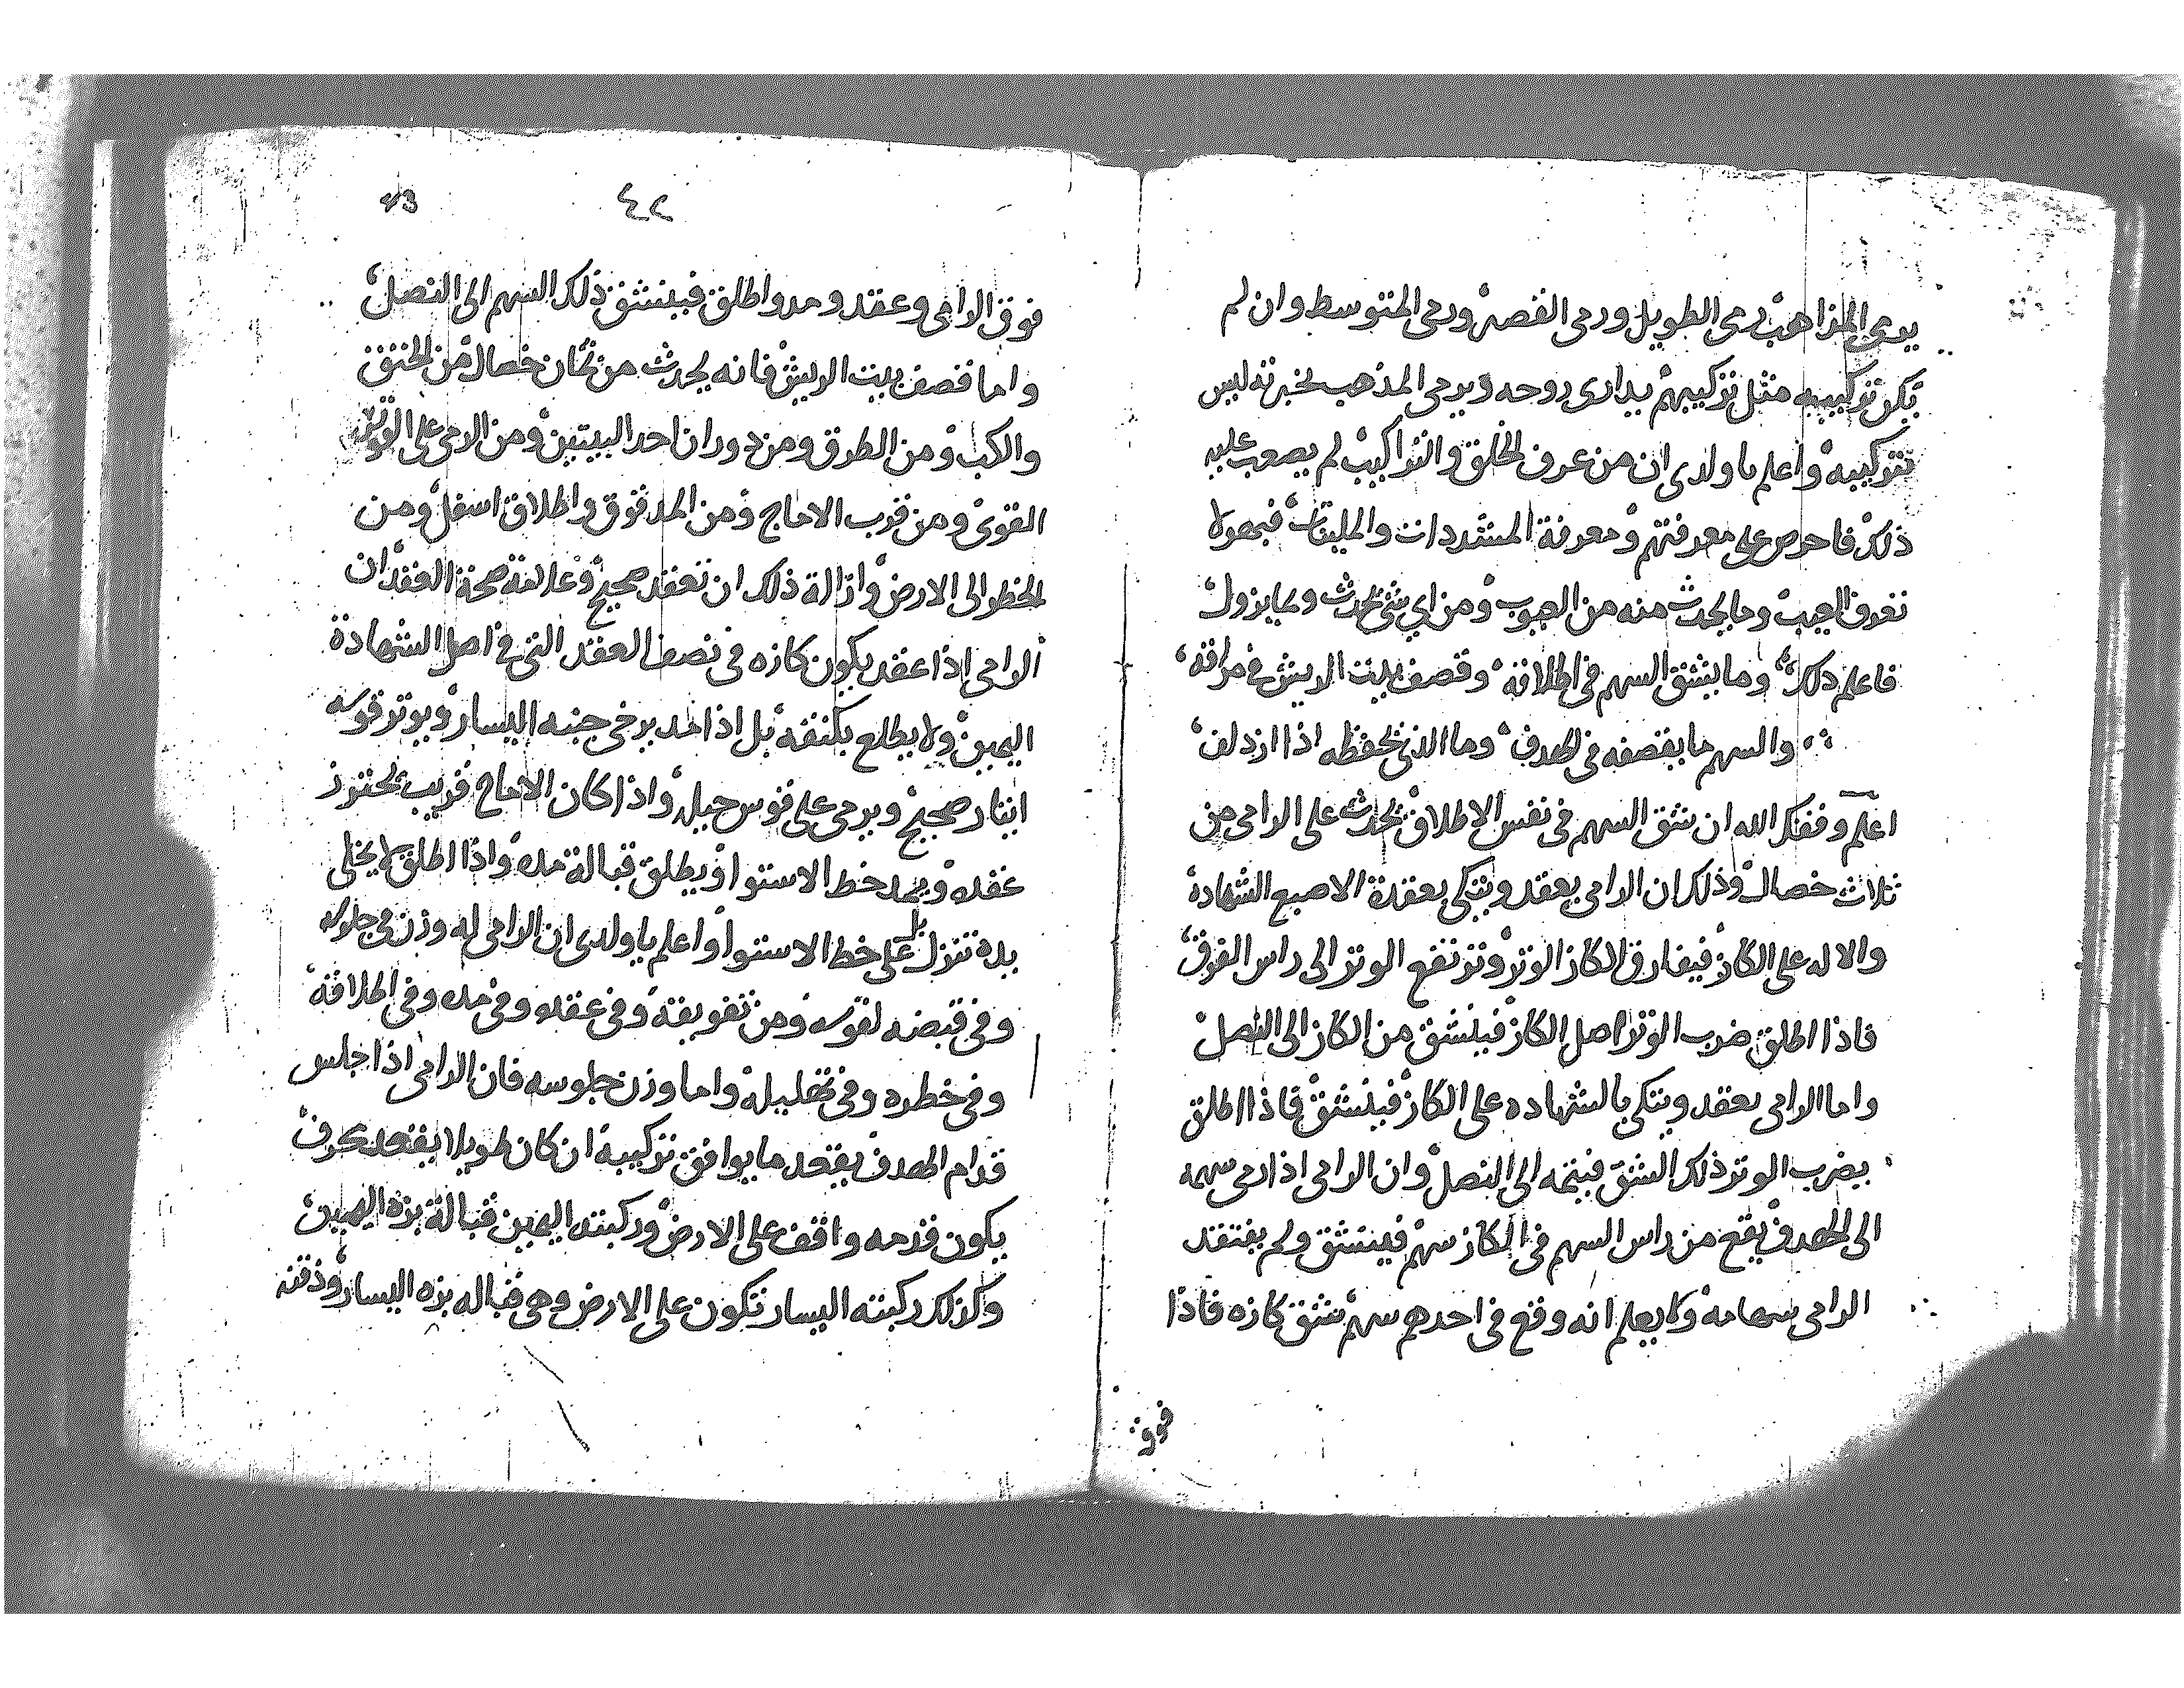 يرمى المذاهب رمى الطويل ورمى القصير ورمى المتوسط وان لم
تكن تركيبه مثل تركيبهم يدارى روحه ويرمى المذهب بخبرته ليس
بتركيبه واعلم يا ولدى ان من عرف الخلق والتراكيب لم يصعب عليه
ذلك فاحرص على معرفتهم ومعرفة المتشددات والملينات فبهولا
تعرف العيب وما يحدث منه من العيوب ومن اي شى يحدث وبما يزول
فاعلم ذلك وما يشق السهم فى اطلاقه وقصف بيت الريش فى مراقه
والسهم ما يقصفه فى الهدف وما الذى يحفظه اذا ازدلف
اعلم وفقك الله ان شق السهم فى نفس الاطلاق يحدث على الرامى من
ثلاث خصال وذلك ان الرامى يعقد ويتكى بعقدة الاصبع الشهادة
والاله على الكاز فيفارق الكاز الوتر وترتفع الوتر الى راس الفوق
فاذا اطلق ضرب الوتر اصل الكاز فينشق من الكاز الى النصل
واما الرامى يعقد ويتكى بالشهاده على الكاز فينشق فاذا اطلق
يضرب الوتر ذلك الشق فيتمه الى النصل وان الرامى اذا رمى سهمه
الى الهدف يقع من راس السهم فى الكاز سهم فينشق ولم يفتقد
الرامى سهامه ولا يعلم انه وقع فى احدهم سهم شق كازه فاذا
فوق
٤٢
43
فوق الرامى وعقد ومد واطلق فينشق ذلك السهم الى النصل
واما قصف بيت الريش فانه يحدث من ثمان خصال من الخنق
والكب ومن الطرق ومن دوران احد البيتين ومن الرمى على الوتر
القوى ومن قرب الاماج ومن المد فوق واطلاق اسفل ومن
الخطر الى الارض وازالة ذلك ان تعقد صحيح وعلامة صحة العقد ان
الرامى اذا عقد يكون كازه فى نصف العقد التى فى اصل الشهادة
اليمين ولا يطلع بكتفه بل اذا مد يرخى جنبه اليسار ويوتر قوسه
ايتار صحيح ويرمى على قوس حيله واذا كان الاماج قريب يحترز
عقده ويمد خط الاستوا ويطلق قبالة مده واذا اطلق لا يخلى
يده تنزل بل على خط الاستوا واعلم يا ولدى ان الرامى له وزن فى جلوسه
وفى قبضه لقوسه ومن تفويقه وفى عقده وفى مده وفى اطلاقه
وفى خطره وفى تقليله واما وزن جلوسه فان الرامى اذا جلس
قدام الهدف يقعد ما يوافق تركيبه ان كان طويلا يقعد بحرف
يكون قدمه واقف على الارض وركبته اليمين قبالة بزه اليمين
وكذلك ركبته اليسار تكون على الارض وهى قباله بزه اليسار وذقنه